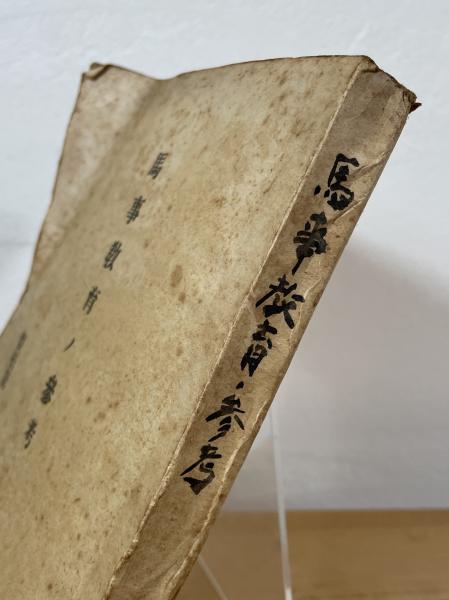 馬事教育ノ参考
馬事教育ノ参考